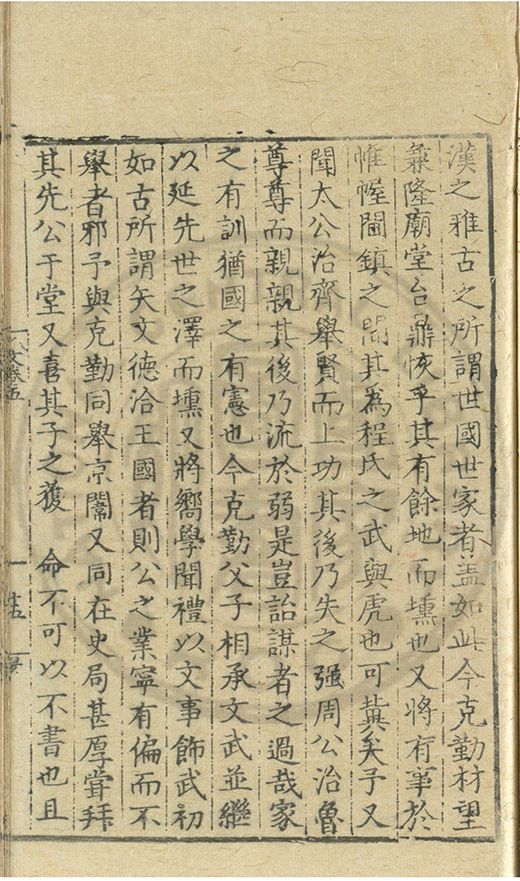 漢之雅古之所謂世國世家者盖如此今克勤材望
兼隆廟堂台鼎恢乎其有餘地而壎也又將有事於
帷幄閫鎮之間其為程氏之武與虎也可冀矣予又
聞太公治齊舉賢而上功其後乃失之强周公治魯
尊尊而親親其後乃流於弱是豈詒謀者之過哉家
之有訓猶國之有憲也今克勤父子相承文武並繼
以延先世之澤而壎又將嚮學聞禮以文事飾武初
如古所謂矢文德洽王國者則公之業寧有偏而不
舉者邪予與克勤同舉京闈又同在史局甚厚嘗拜
其先公于堂又喜其子之獲 命不可以不書也且
文卷五
十五